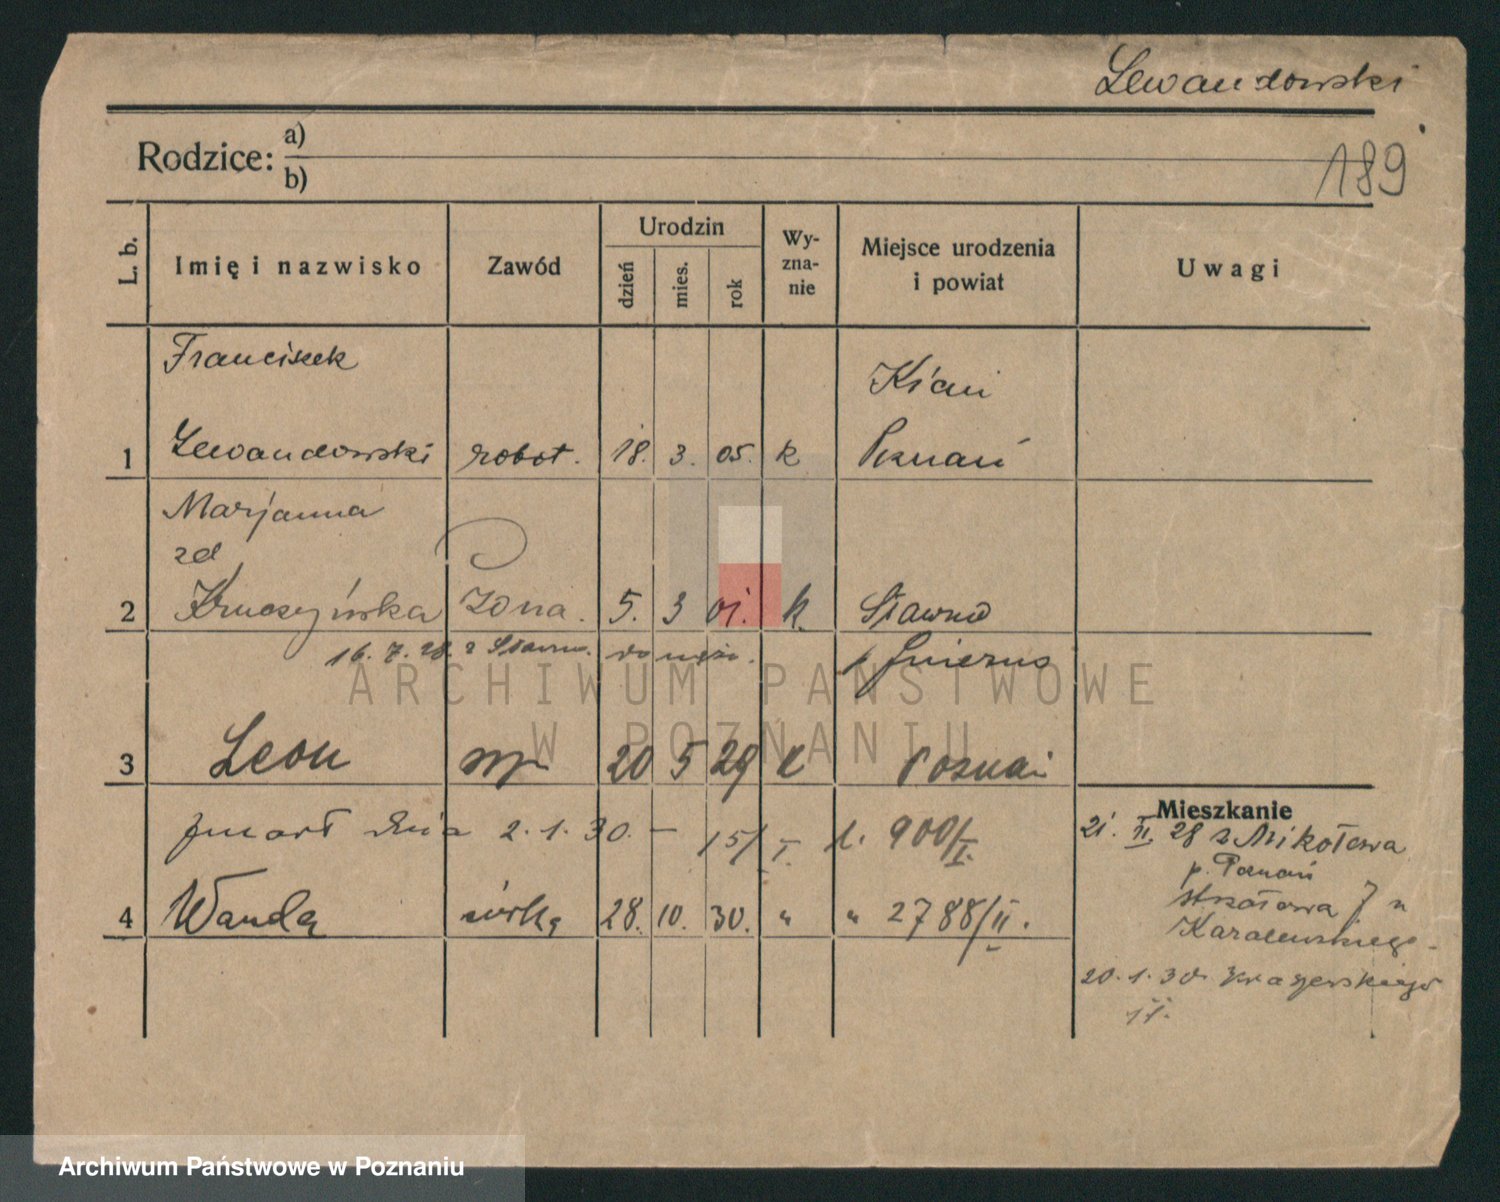 Lewandowski
Rodzice: a)
b)
189
L. b.
Imię i nazwisko
Zawód
Urodzin
dzień
mies.
rok
Wy-
zna-
nie
Miejsce urodzenia
i powiat
Uwagi
Franciszek
Kiani
1 Lewandowski robot. 18. 3. 05. k Poznań
Marjanna
zd
2 żona. 5. 3 01. k. Sławno
16. 7. 28. z Sławna. do męża.
ARCHIWUM PAŃSTWOWE
W POZNANIU
3 Leon syn 20 5 29 k Poznań
zmarł dnia 2. 1. 30. — 15/I. l. 900/I.
Mieszkanie
21. II. 28 z Mikołowa
p. Poznań
Strzałowa 7 u
4 Wanda córka 28. 10. 30. " " 2788/II.
20. 1. 30
11.
Archiwum Państwowe w Poznaniu